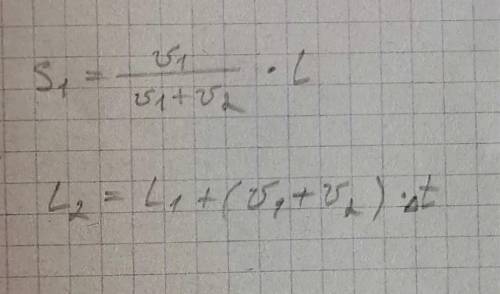 S₁ = v₁ / (v₁ + v₂) · L
L₂ = L₁ + (v₁ + v₂) · Δt